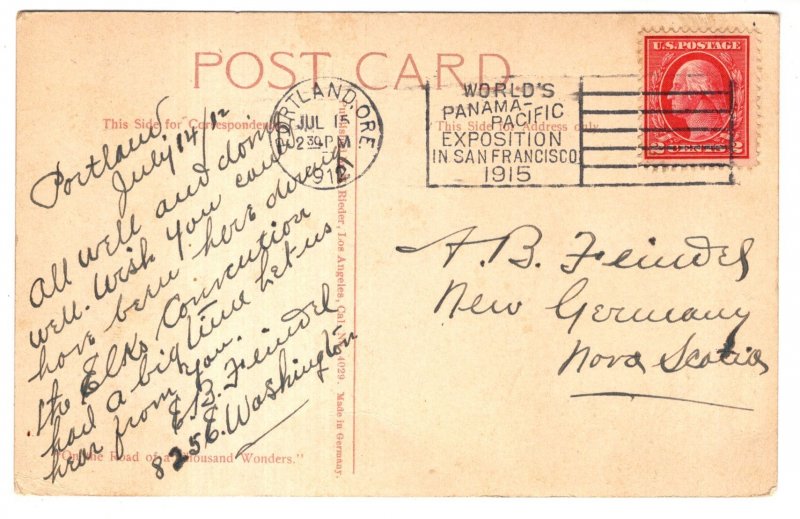 POST CARD
This Side for Correspondence
"This Side for Address only
PORTLAND, ORE.
JUL 15
2 30 PM
1912
WORLD'S
PANAMA-
PACIFIC
EXPOSITION
IN SAN FRANCISCO
1915
U.S. POSTAGE
2 CENTS 2
Portland
July 14/12
All well and doing
well. Wish you could
have been here during
the Elks Convention
had a big time Let us
hear from you.
E.B. Feindel
825 E. Washington
A. B. Feindel
New Germany
Nova Scotia
Rieder, Los Angeles, Cal. No. 4029. Made in Germany.
"On the Road of a Thousand Wonders."